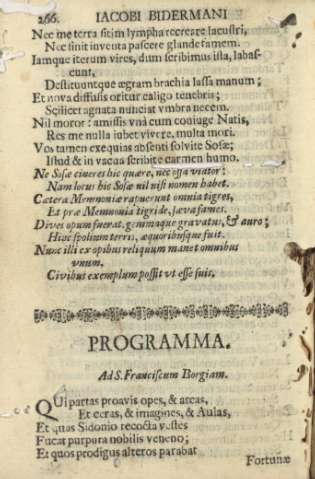 266. IACOBI BIDERMANI
Nec me terra sitim lympha recreare lacustri,
Nec sinit inventa pascere glande famem.
Iamque iterum vires, dum scribimus ista, labas-
cunt,
Destituuntque ægram brachia lassa manum;
Et nova diffusis oritur caligo tenebris;
Scilicet agnata nunciat vmbra necem.
Nil moror: amissis vnà cum coniuge Natis,
Res me nulla iubet vivere, multa mori.
Vos tamen exequias absenti solvite Sosæ;
Istud & in vacua scribite carmen humo.
Ne Sosæ cineres hic quære, nec ossa viator:
Nam locus hic Sosæ nil nisi nomen habet.
Cætera Memmoniæ rapuerunt omnia tigres,
Et præ Memnonia tigride, sæva fames.
Dives opum fuerat, gemmaque gravatus, & auro;
Hinc spolium terris, æquoribusque fuit.
Nunc illi ex opibus reliquum manet omnibus
vnum,
Civibus exemplum possit vt esse suis.
PROGRAMMA.
Ad S. Franciscum Borgiam.
QUi partas proavis opes, & arcas,
Et ceras, & imagines, & Aulas,
Et quas Sidonio recocta vestes
Fucat purpura nobilis veneno;
Et quos prodigus alteros parabat
Fortunæ